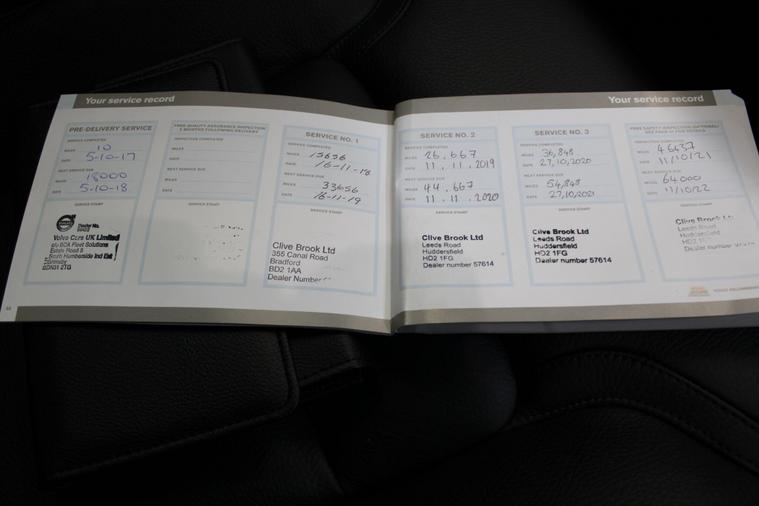 Your service record
PRE-DELIVERY SERVICE
SERVICE COMPLETED
MILES 10
DATE 5-10-17
NEXT SERVICE DUE
MILES 18000
DATE 5-10-18
SERVICE STAMP
Volvo Cars UK Limited
c/o BCA Fleet Solutions
Estate Road 8
South Humberside Ind Est
Grimsby
DN31 2TG
FREE QUALITY ASSURANCE INSPECTION
3 MONTHS FOLLOWING DELIVERY
INSPECTION COMPLETED
MILES
DATE
NEXT SERVICE DUE
MILES
DATE
SERVICE STAMP
SERVICE NO. 1
SERVICE COMPLETED
MILES 15656
DATE 16-11-18
NEXT SERVICE DUE
MILES 33656
DATE 16-11-19
SERVICE STAMP
Clive Brook Ltd
355 Canal Road
Bradford
BD2 1AA
Dealer Number
Your service record
SERVICE NO. 2
SERVICE COMPLETED
MILES 26,667
DATE 11.11.2019
NEXT SERVICE DUE
MILES 44,667
DATE 11.11.2020
SERVICE STAMP
Clive Brook Ltd
Leeds Road
Huddersfield
HD2 1FG
Dealer number 57614
SERVICE NO. 3
SERVICE COMPLETED
MILES 36,848
DATE 27,10,2020
NEXT SERVICE DUE
MILES 54,848
DATE 27,10,2021
SERVICE STAMP
Clive Brook Ltd
Leeds Road
Huddersfield
HD2 1FG
Dealer number 57614
FREE SAFETY INSPECTION
MILES 46437
DATE 11/10/21
NEXT SERVICE DUE
MILES 64000
DATE 11/10/22
SERVICE STAMP
Clive Brook Ltd
Leeds Road
Huddersfield
HD2
Dealer number